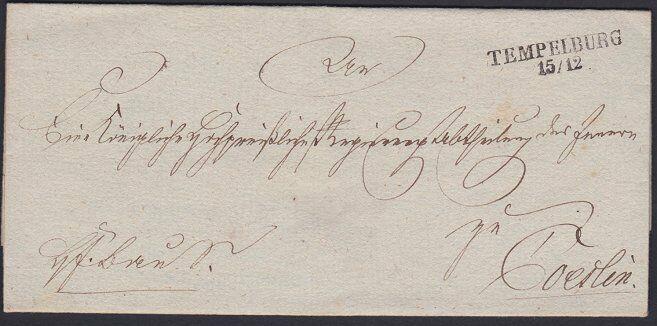 An
TEMPELBURG
15/12
Eine Königliche Hochpreißliche Regierung Abtheilung des Innern
zu
Coeslin.